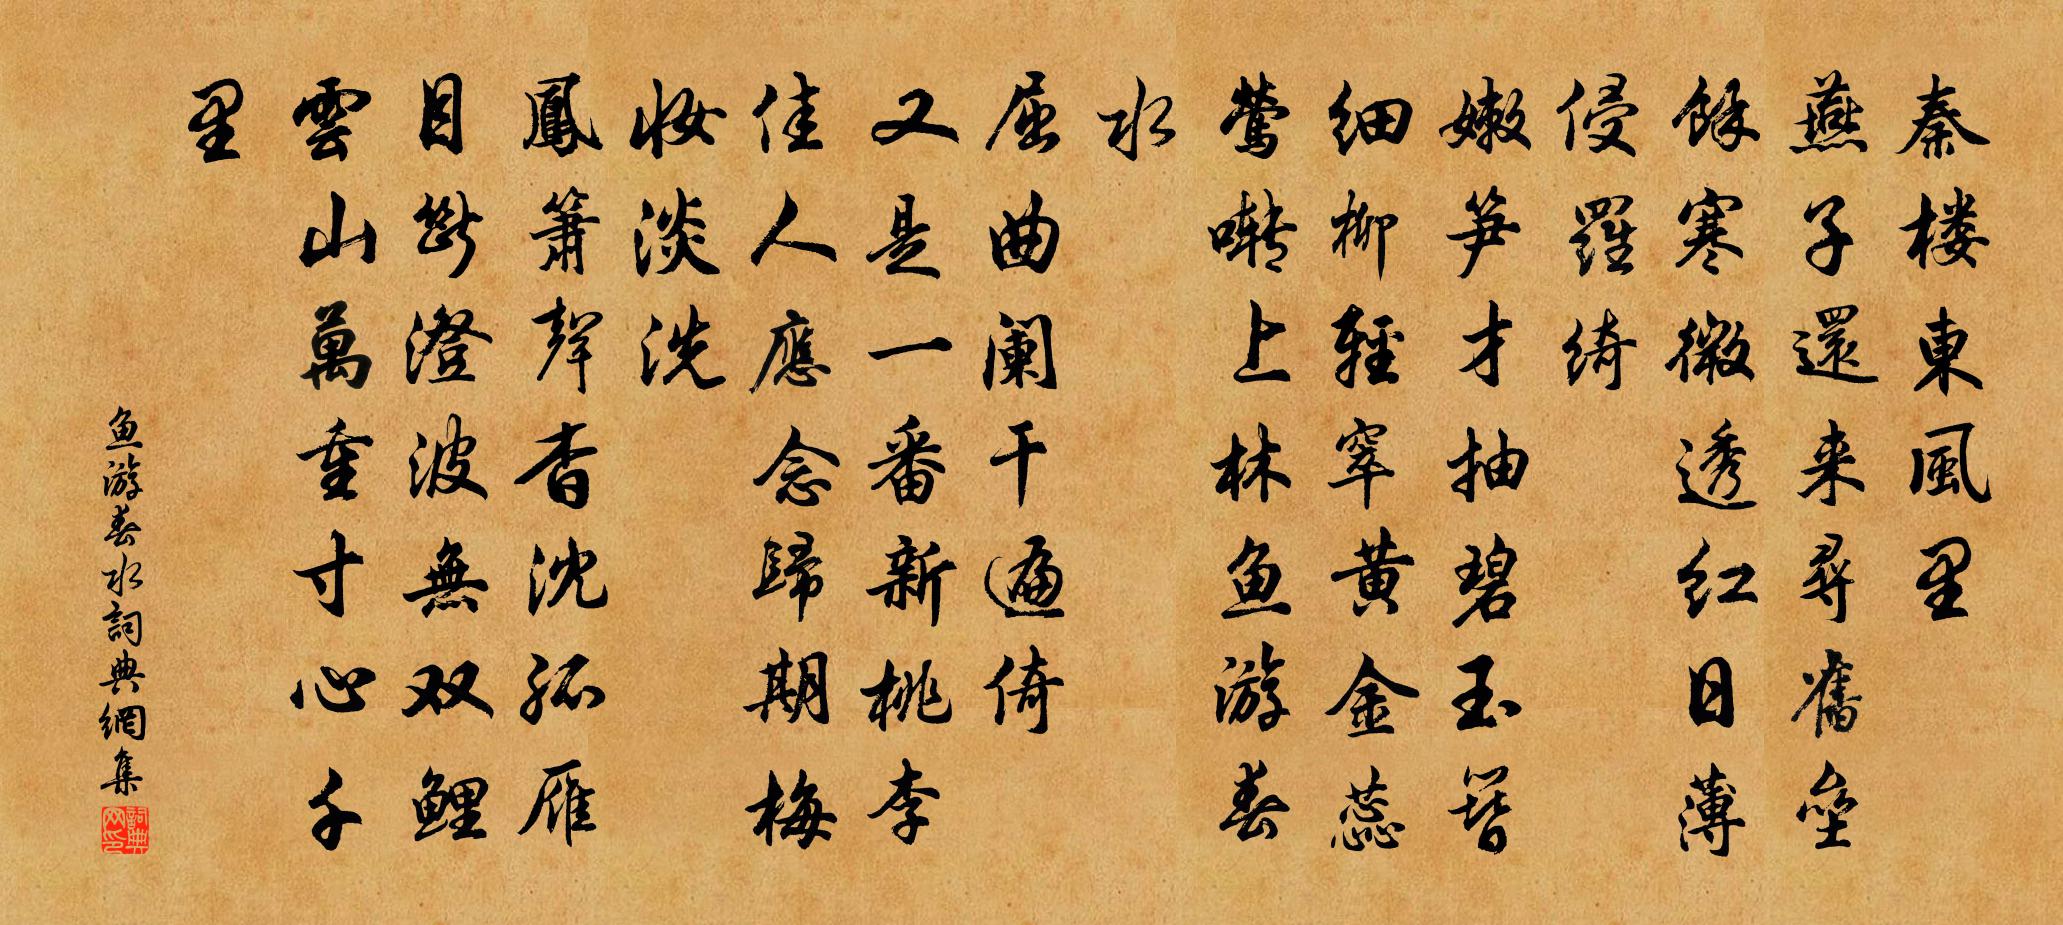 秦楼東風里
燕子還来尋舊壘
餘寒微透红日薄
侵羅綺
嫩笋才抽碧玉簪
细柳輕窣黄金蕊
鶯啭上林鱼游春
水
屈曲阑干遍倚
又是一番新桃李
佳人應念歸期梅
妆淡洗
鳳簫聲杳沈孤雁
目断澄波無双鲤
雲山萬重寸心千
里
鱼游春水詞典網集
詞典网印